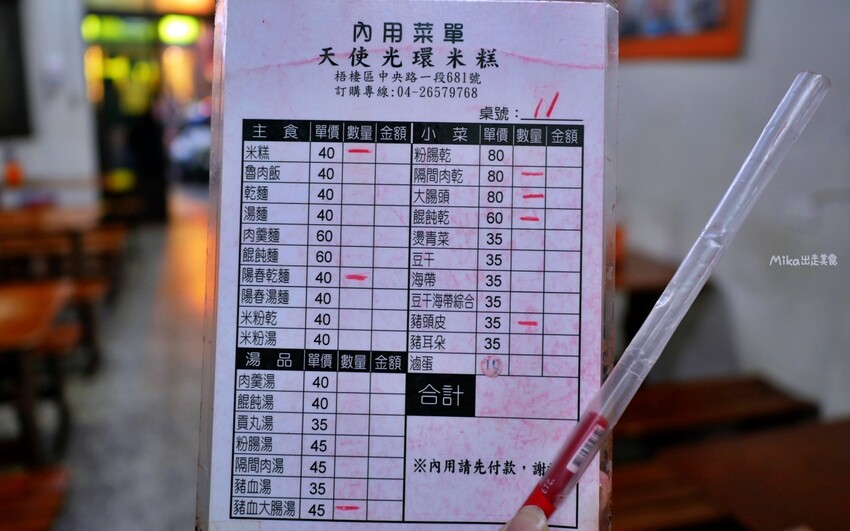 內用菜單
天使光環米糕
梧棲區中央路一段681號
訂購專線:04-26579768
桌號: 11
主食 單價 數量 金額
米糕 40 一
魯肉飯 40
乾麵 40
湯麵 40
肉羹麵 60
餛飩麵 60
陽春乾麵 40 一
陽春湯麵 40
米粉乾 40
米粉湯 40
湯品 單價 數量 金額
肉羹湯 40
餛飩湯 40
貢丸湯 35
粉腸湯 45
隔間肉湯 45
豬血湯 35
豬血大腸湯 45 一
小菜 單價 數量 金額
粉腸乾 80
隔間肉乾 80 一
大腸頭 80 一
餛飩乾 60 一
燙青菜 35
豆干 35
海帶 35
豆干海帶綜合 35
豬頭皮 35 一
豬耳朵 35
滷蛋 10
合計
※內用請先付款，謝
Mika出走美食